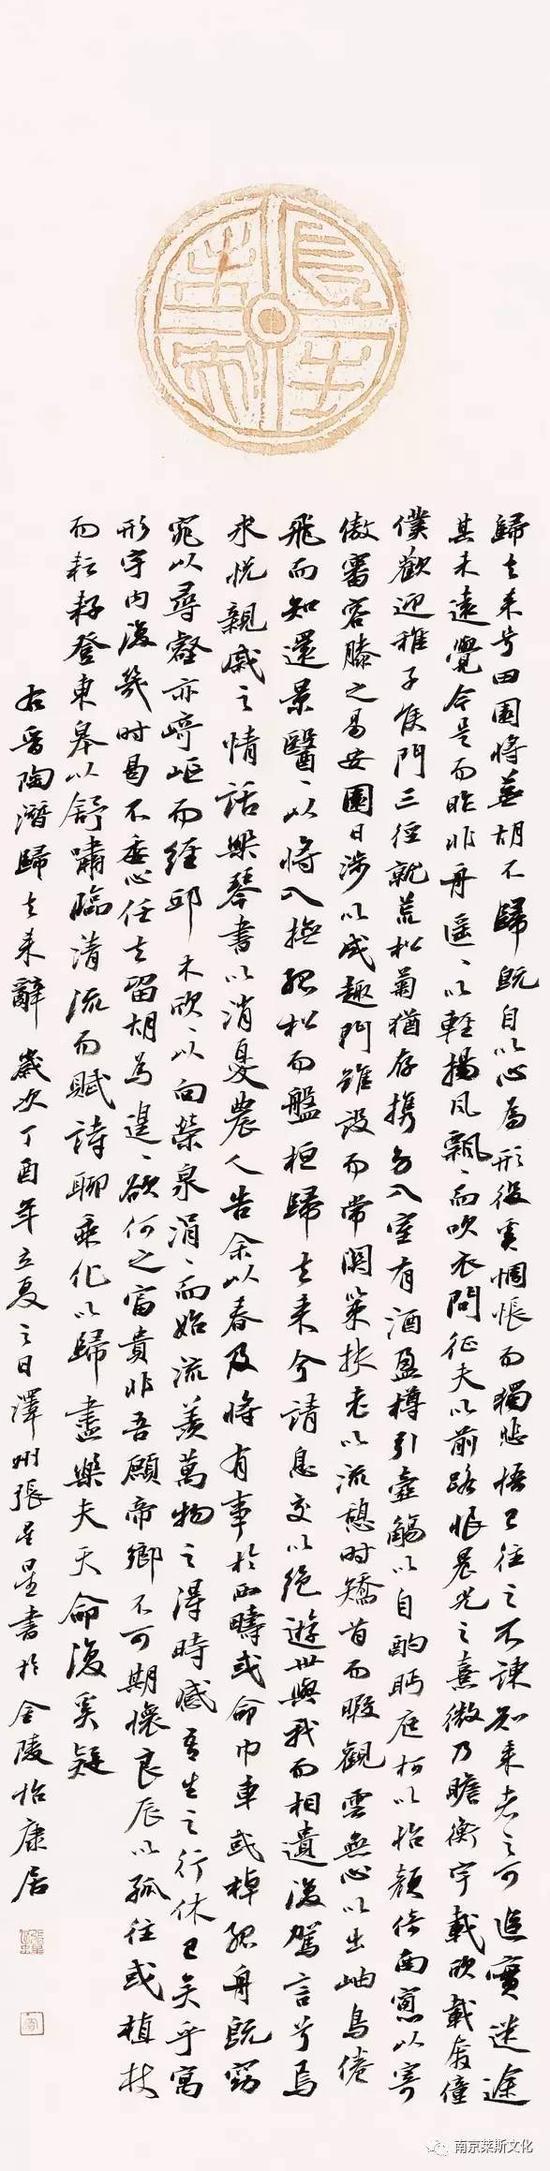 長生未央
歸去来兮田園將蕪胡不歸既自以心為形役奚惆悵而獨悲悟已往之不諫知来者之可追實迷途
其未遠覺今是而昨非舟遥〻以輕揚風飄〻而吹衣問征夫以前路恨晨光之熹微乃瞻衡宇載欣載奔僮
僕歡迎稚子候門三徑就荒松菊猶存携幼入室有酒盈樽引壺觴以自酌眄庭柯以怡顔倚南窗以寄
傲審容膝之易安園日涉以成趣門雖設而常關策扶老以流憩時矯首而暇觀雲無心以出岫鳥倦
飛而知還景翳〻以將入撫孤松而盤桓歸去来兮請息交以絶遊世與我而相遺復駕言兮焉
求悦親戚之情話樂琴書以消憂農人告余以春及將有事於西疇或命巾車或棹孤舟既窈
窕以尋壑亦崎嶇而經邱木欣〻以向榮泉涓〻而始流羨萬物之得時感吾生之行休已矣乎寓
形宇内復幾時曷不委心任去留胡為遑〻欲何之富貴非吾願帝鄉不可期懷良辰以孤往或植杖
而耘耔登東皋以舒嘯臨清流而賦詩聊乘化以歸盡樂夫天命復奚疑
右晋陶潛歸去来辭 歲次丁酉年立夏之日澤州張星星書於金陵怡康居
南京莱斯文化